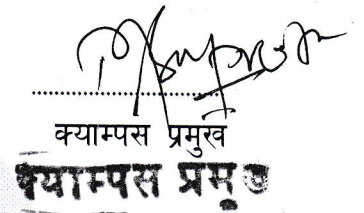 क्याम्पस प्रमुख
क्याम्पस प्रमुख